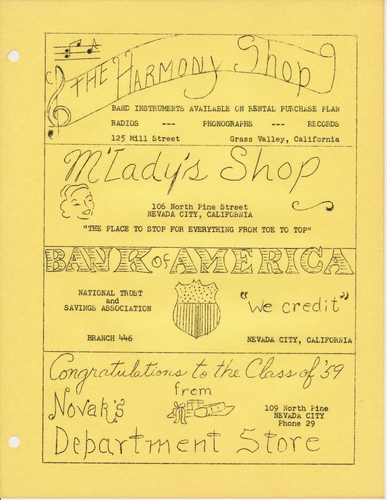 THE HARMONY Shop
BAND INSTRUMENTS AVAILABLE ON RENTAL PURCHASE PLAN
RADIOS --- PHONOGRAPHS --- RECORDS
125 Mill Street Grass Valley, California
M'Lady's Shop
106 North Pine Street
NEVADA CITY, CALIFORNIA
"THE PLACE TO STOP FOR EVERYTHING FROM TOE TO TOP"
BANK OF AMERICA
NATIONAL TRUST
and
SAVINGS ASSOCIATION
"We credit"
BRANCH 446
NEVADA CITY, CALIFORNIA
Congratulations to the Class of '59
from
Novak's
109 North Pine
NEVADA CITY
Phone 29
Department Store